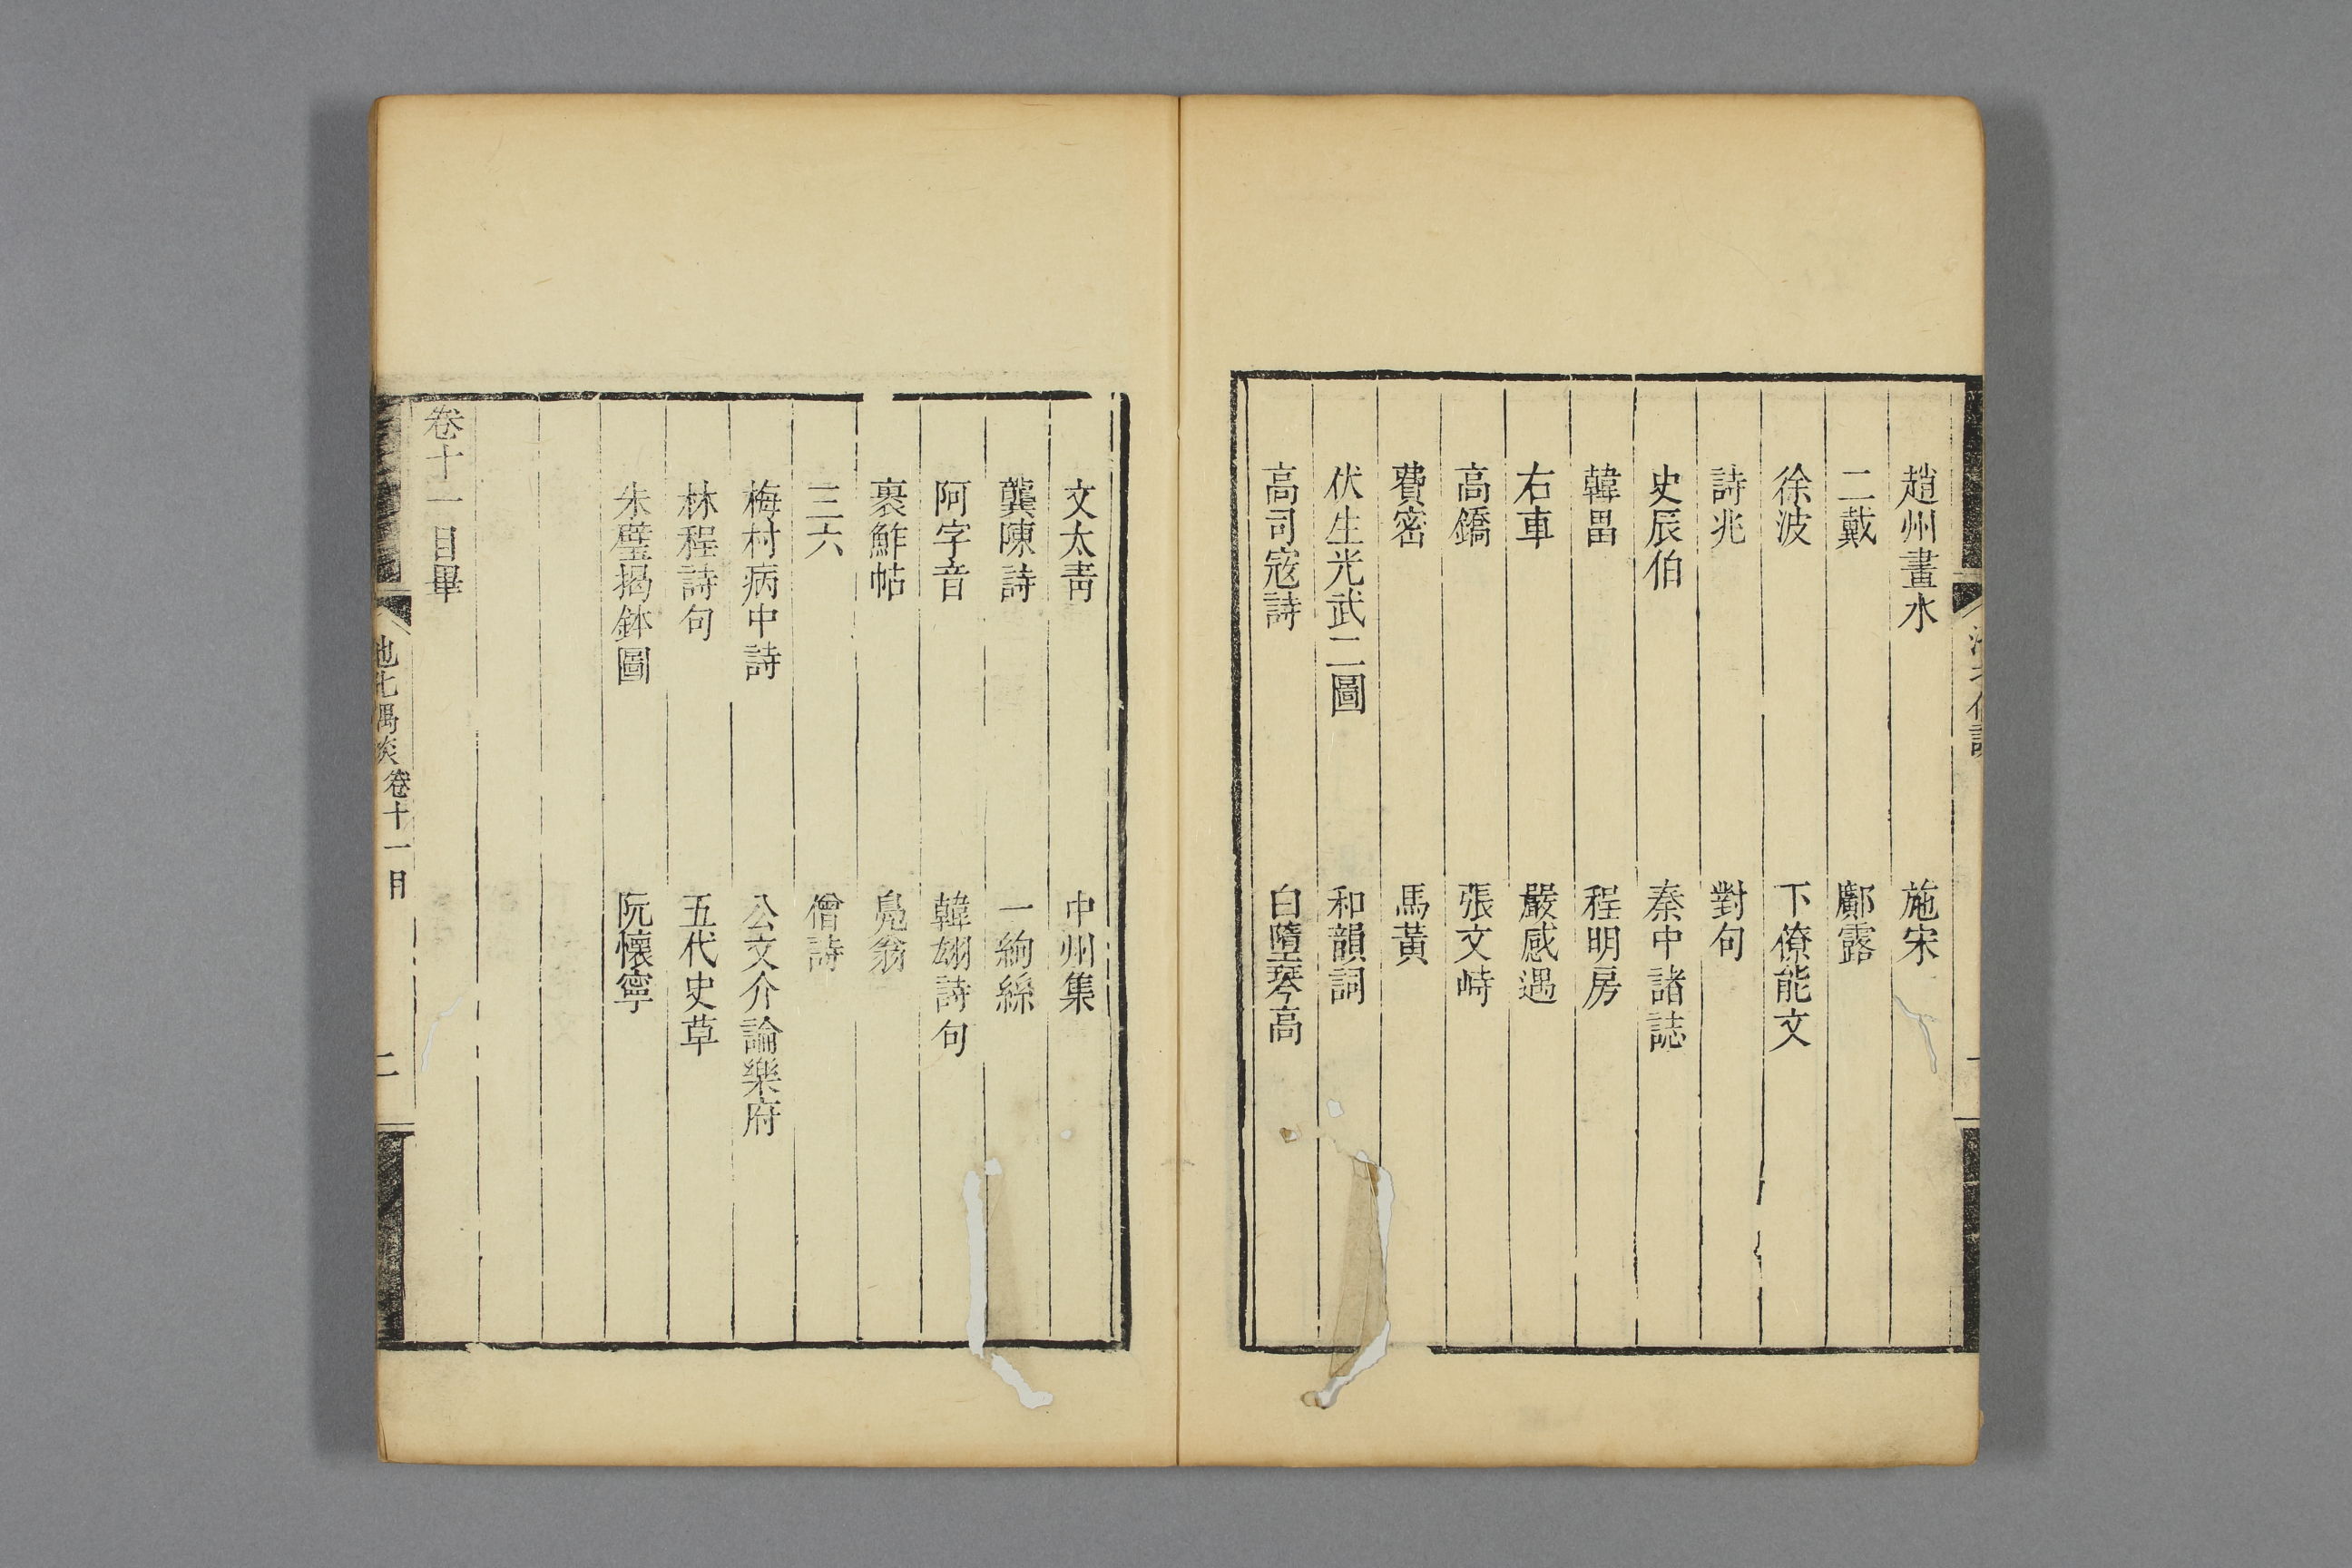 趙州畫水　施宋
二戴　鄺露
徐波　下僚能文
詩兆　對句
史辰伯　秦中諸誌
韓畕　程明房
右車　嚴感遇
高鐈　張文峙
費密　馬黃
伏生光武二圖　和韻詞
高司寇詩　白墮琴高
文太青　中州集
龔陳詩　一絇絲
阿字音　韓翃詩句
裹鮓帖　鳧翁
三六　僧詩
梅村病中詩　公文介論樂府
林程詩句　五代史草
朱璧揭鉢圖　阮懷寧
卷十一目畢
池北偶談　卷十一目　二